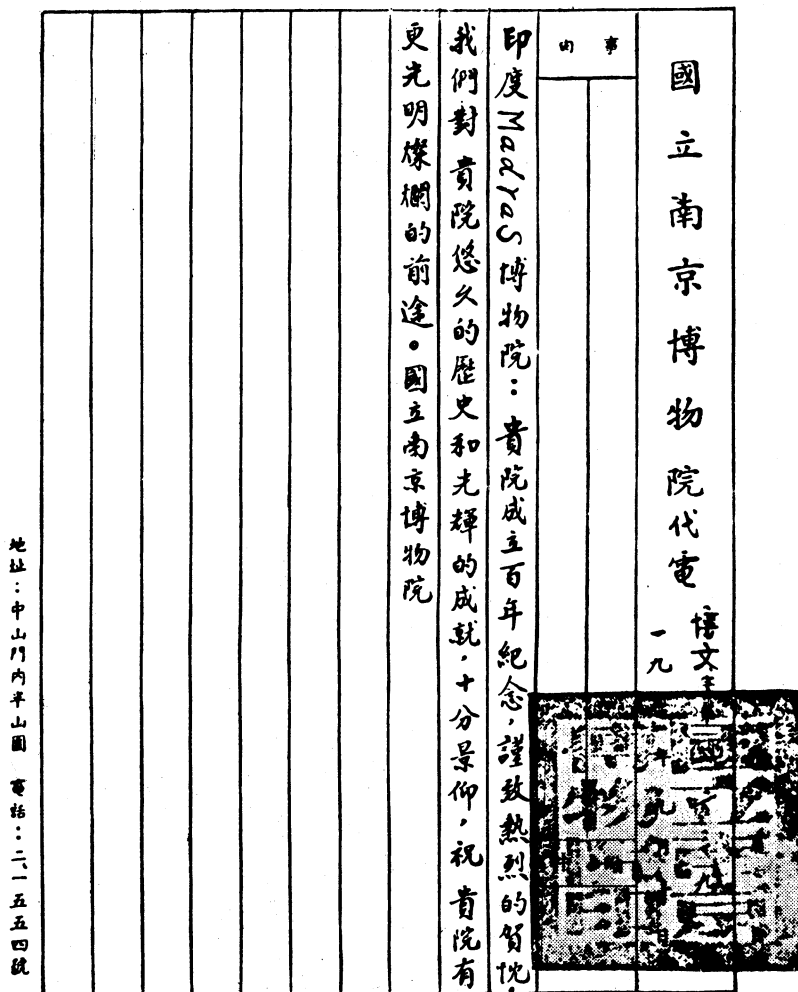 國立南京博物院代電
博文
一九
事由
印度Madras博物院：貴院成立百年紀念，謹致熱烈的賀忱，
我們對 貴院悠久的歷史和光輝的成就，十分景仰，祝 貴院有
更光明燦爛的前途。國立南京博物院
地址：中山門内半山園 電話：二、一五五四號